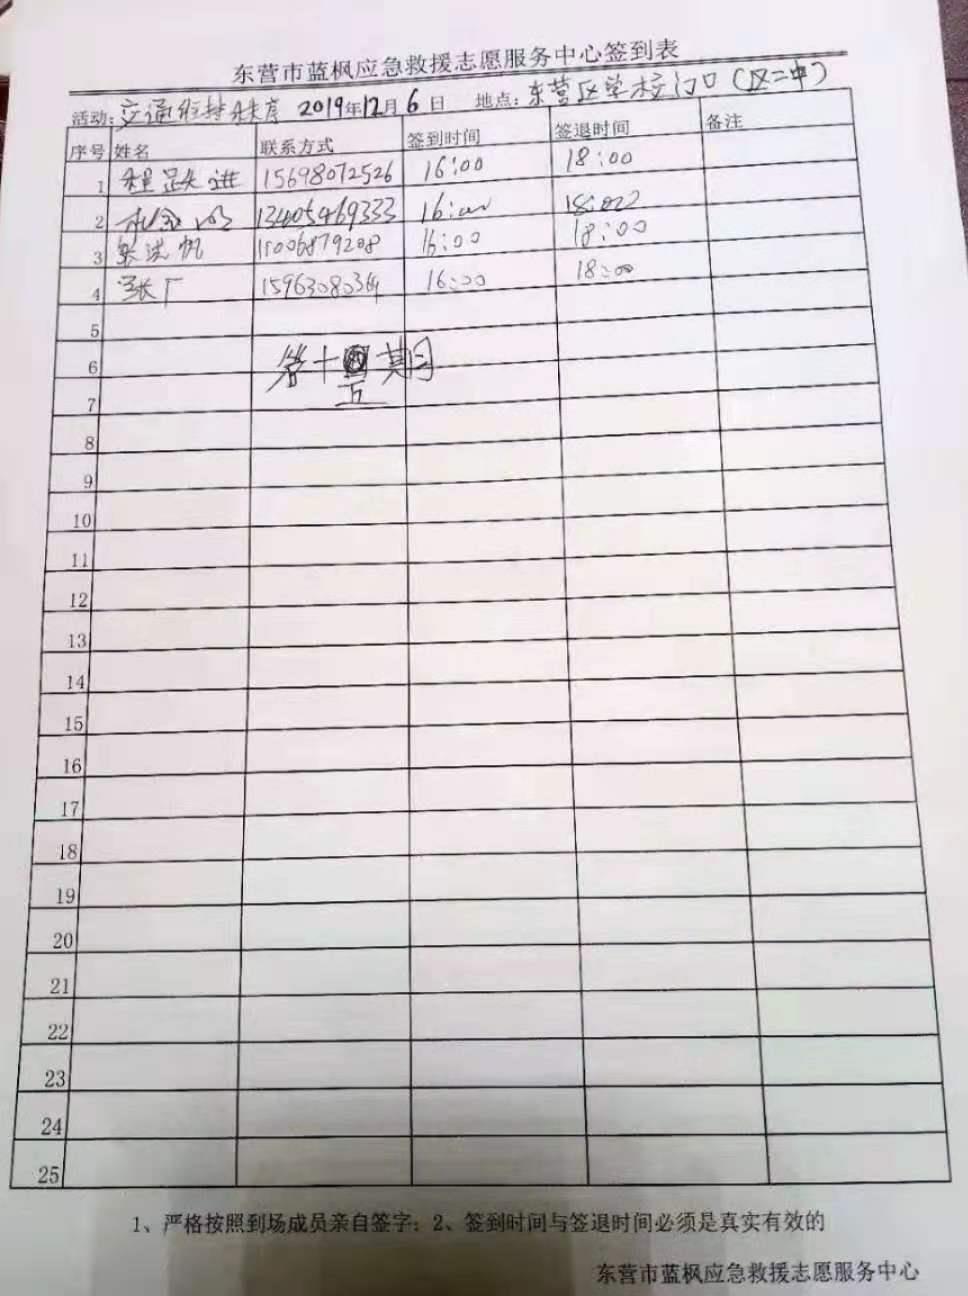 东营市蓝枫应急救援志愿服务中心签到表
活动:交通维持秩序 2019年12月6日 地点:东营区学校门口(区二中)
序号 姓名 联系方式 签到时间 签退时间 备注
1 程跃进 15698072526 16:00 18:00
2 13405469333 16:00 18:00
3 15006879208 16:00 18:00
4 张广 15963080364 16:00 18:00
5
6 第十五期
7
8
9
10
11
12
13
14
15
16
17
18
19
20
21
22
23
24
25
1、严格按照到场成员亲自签字;2、签到时间与签退时间必须是真实有效的
东营市蓝枫应急救援志愿服务中心